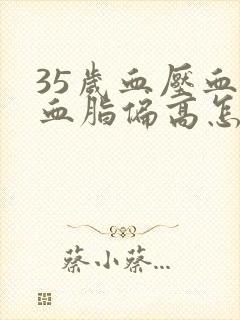 35歲血壓血
血脂偏高怎
蔡小蔡...